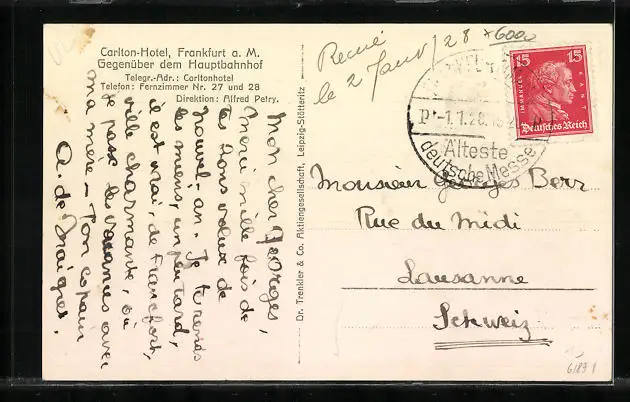 Carlton-Hotel, Frankfurt a. M.
Gegenüber dem Hauptbahnhof
Telegr.-Adr.: Carltonhotel
Telefon: Fernzimmer Nr. 27 und 28
Direktion: Alfred Petry.
Mon cher Georges,
merci mille fois de
tes bons vœux de
nouvel-an. Je te rends
les miens, un peu tard,
il est vrai, de Francfort,
ville charmante, où
je passe les vacances avec
ma mère - Ton copain
A. de
Dr. Trenkler & Co. Aktiengesellschaft, Leipzig-Stötteritz
Reçu
le 2 Janv/28
*600a
-1.1.28.
Älteste
deutsche Messe
15 15
IMMANUEL KANT
Deutsches Reich
Monsieur Georges Berr
Rue du Midi
Lausanne
Schweiz